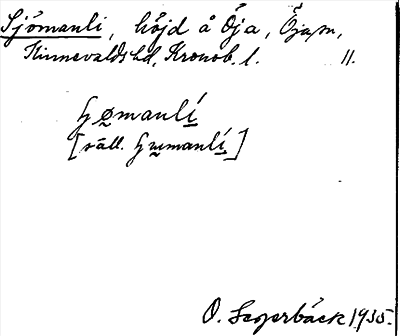 Sjömanli, höjd å Öja, Öja sn,
Kinnevalds hd, Kronob. l. 11.
ɧømanlí
[väll. ɧɯmanlí]
O. Segerbäck 1935.